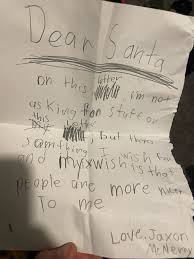 Dear Santa
on this letter im not
asking for stuff or
this letter, but there
something I wish for
and my wish is that
people are more nicer
To me
Love, Jaxon